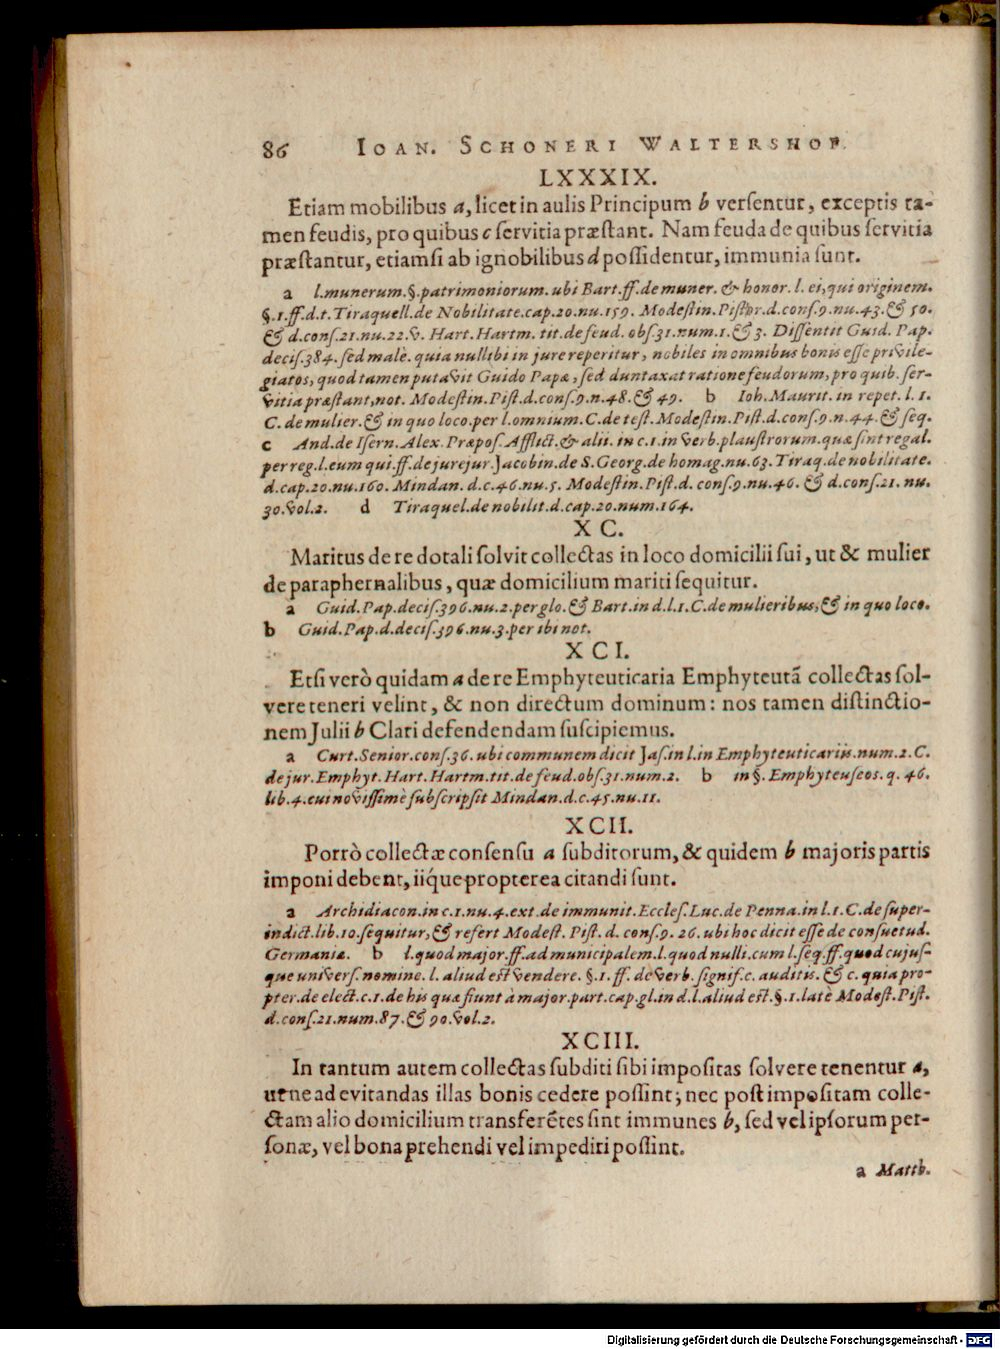 86 IOAN. SCHONERI WALTERSHOF.
LXXXIX.
Etiam mobilibus a, licet in aulis Principum b versentur, exceptis ta-
men feudis, pro quibus c servitia præstant. Nam feuda de quibus servitia
præstantur, etiamsi ab ignobilibus d possidentur, immunia sunt.
a l. munerum. §. patrimoniorum. ubi Bart. ff. de muner. & honor. l. ei, qui originem.
§. 1. ff. d. t. Tiraquell. de Nobilitate. cap. 20. nu. 159. Modestin. Pistor. d. cons. 9. nu. 43. & 50.
& d. cons. 21. nu. 22. V. Hart. Hartm. tit. de feud. obs. 31. num. 1. & 3. Dissentit Guid. Pap.
decis. 384. sed malè. quia nullibi in jure reperitur, nobiles in omnibus bonis esse privile-
giatos, quod tamen putavit Guido Papæ, sed duntaxat ratione feudorum, pro quib. ser-
vitia præstant, not. Modestin. Pist. d. cons. 9. n. 48. & 49. b Ioh. Maurit. in repet. l. 1.
C. de mulier. & in quo loco. per l. omnium. C. de test. Modestin. Pist. d. cons. 9. n. 44. & seq.
c And. de Isern. Alex. Præpos. Afflict. & alii. in c. 1. in verb. plaustrorum. quæ sint regal.
per reg. l. eum qui. ff. de jurejur. Jacobin. de S. Georg. de homag. nu. 63. Tiraq. de nobilitate.
d. cap. 20. nu. 160. Mindan. d. c. 46. nu. 5. Modestin. Pist. d. cons. 9. nu. 46. & d. cons. 21. nu.
30. vol. 2. d Tiraquel. de nobilit. d. cap. 20. num. 164.
XC.
Maritus de re dotali solvit collectas in loco domicilii sui, ut & mulier
de paraphernalibus, quæ domicilium mariti sequitur.
a Guid. Pap. decis. 396. nu. 2. per glo. & Bart. in d. l. 1. C. de mulieribus, & in quo loco.
b Guid. Pap. d. decis. 396. nu. 3. per ibi not.
XCI.
Etsi verò quidam a de re Emphyteuticaria Emphyteutã collectas sol-
vere teneri velint, & non directum dominum: nos tamen distinctio-
nem Julii b Clari defendendam suscipiemus.
a Curt. Senior. cons. 36. ubi communem dicit Jas. in l. in Emphyteuticariis. num. 2. C.
de jur. Emphyt. Hart. Hartm. tit. de feud. obs. 31. num. 2. b in §. Emphyteuseos. q. 46.
lib. 4. cui novissimè subscripsit Mindan. d. c. 45. nu. 11.
XCII.
Porrò collectæ consensu a subditorum, & quidem b majoris partis
imponi debent, iíque propterea citandi sunt.
a Archidiacon. in c. 1. nu. 4. ext. de immunit. Eccles. Luc. de Penna. in l. 1. C. de super-
indict. lib. 10. sequitur, & refert Modest. Pist. d. cons. 9. 26. ubi hoc dicit esse de consuetud.
Germaniæ. b l. quod major. ff. ad municipalem. l. quod nulli. cum l. seq. ff. quod cujus-
que univers. nomine. l. aliud est vendere. §. 1. ff. de verb. signif. c. auditis. & c. quia pro-
pter. de elect. c. 1. de his quæ fiunt à major. part. cap. gl. in d. l. aliud est. §. 1. latè Modest. Pist.
d. cons. 21. num. 87. & 90. vol. 2.
XCIII.
In tantum autem collectas subditi sibi impositas solvere tenentur a,
ut ne ad evitandas illas bonis cedere possint; nec post impositam colle-
ctam alio domicilium transferẽtes sint immunes b, sed vel ipsorum per-
sonæ, vel bona prehendi vel impediri possint.
a Matth.
Digitalisierung gefördert durch die Deutsche Forschungsgemeinschaft - DFG